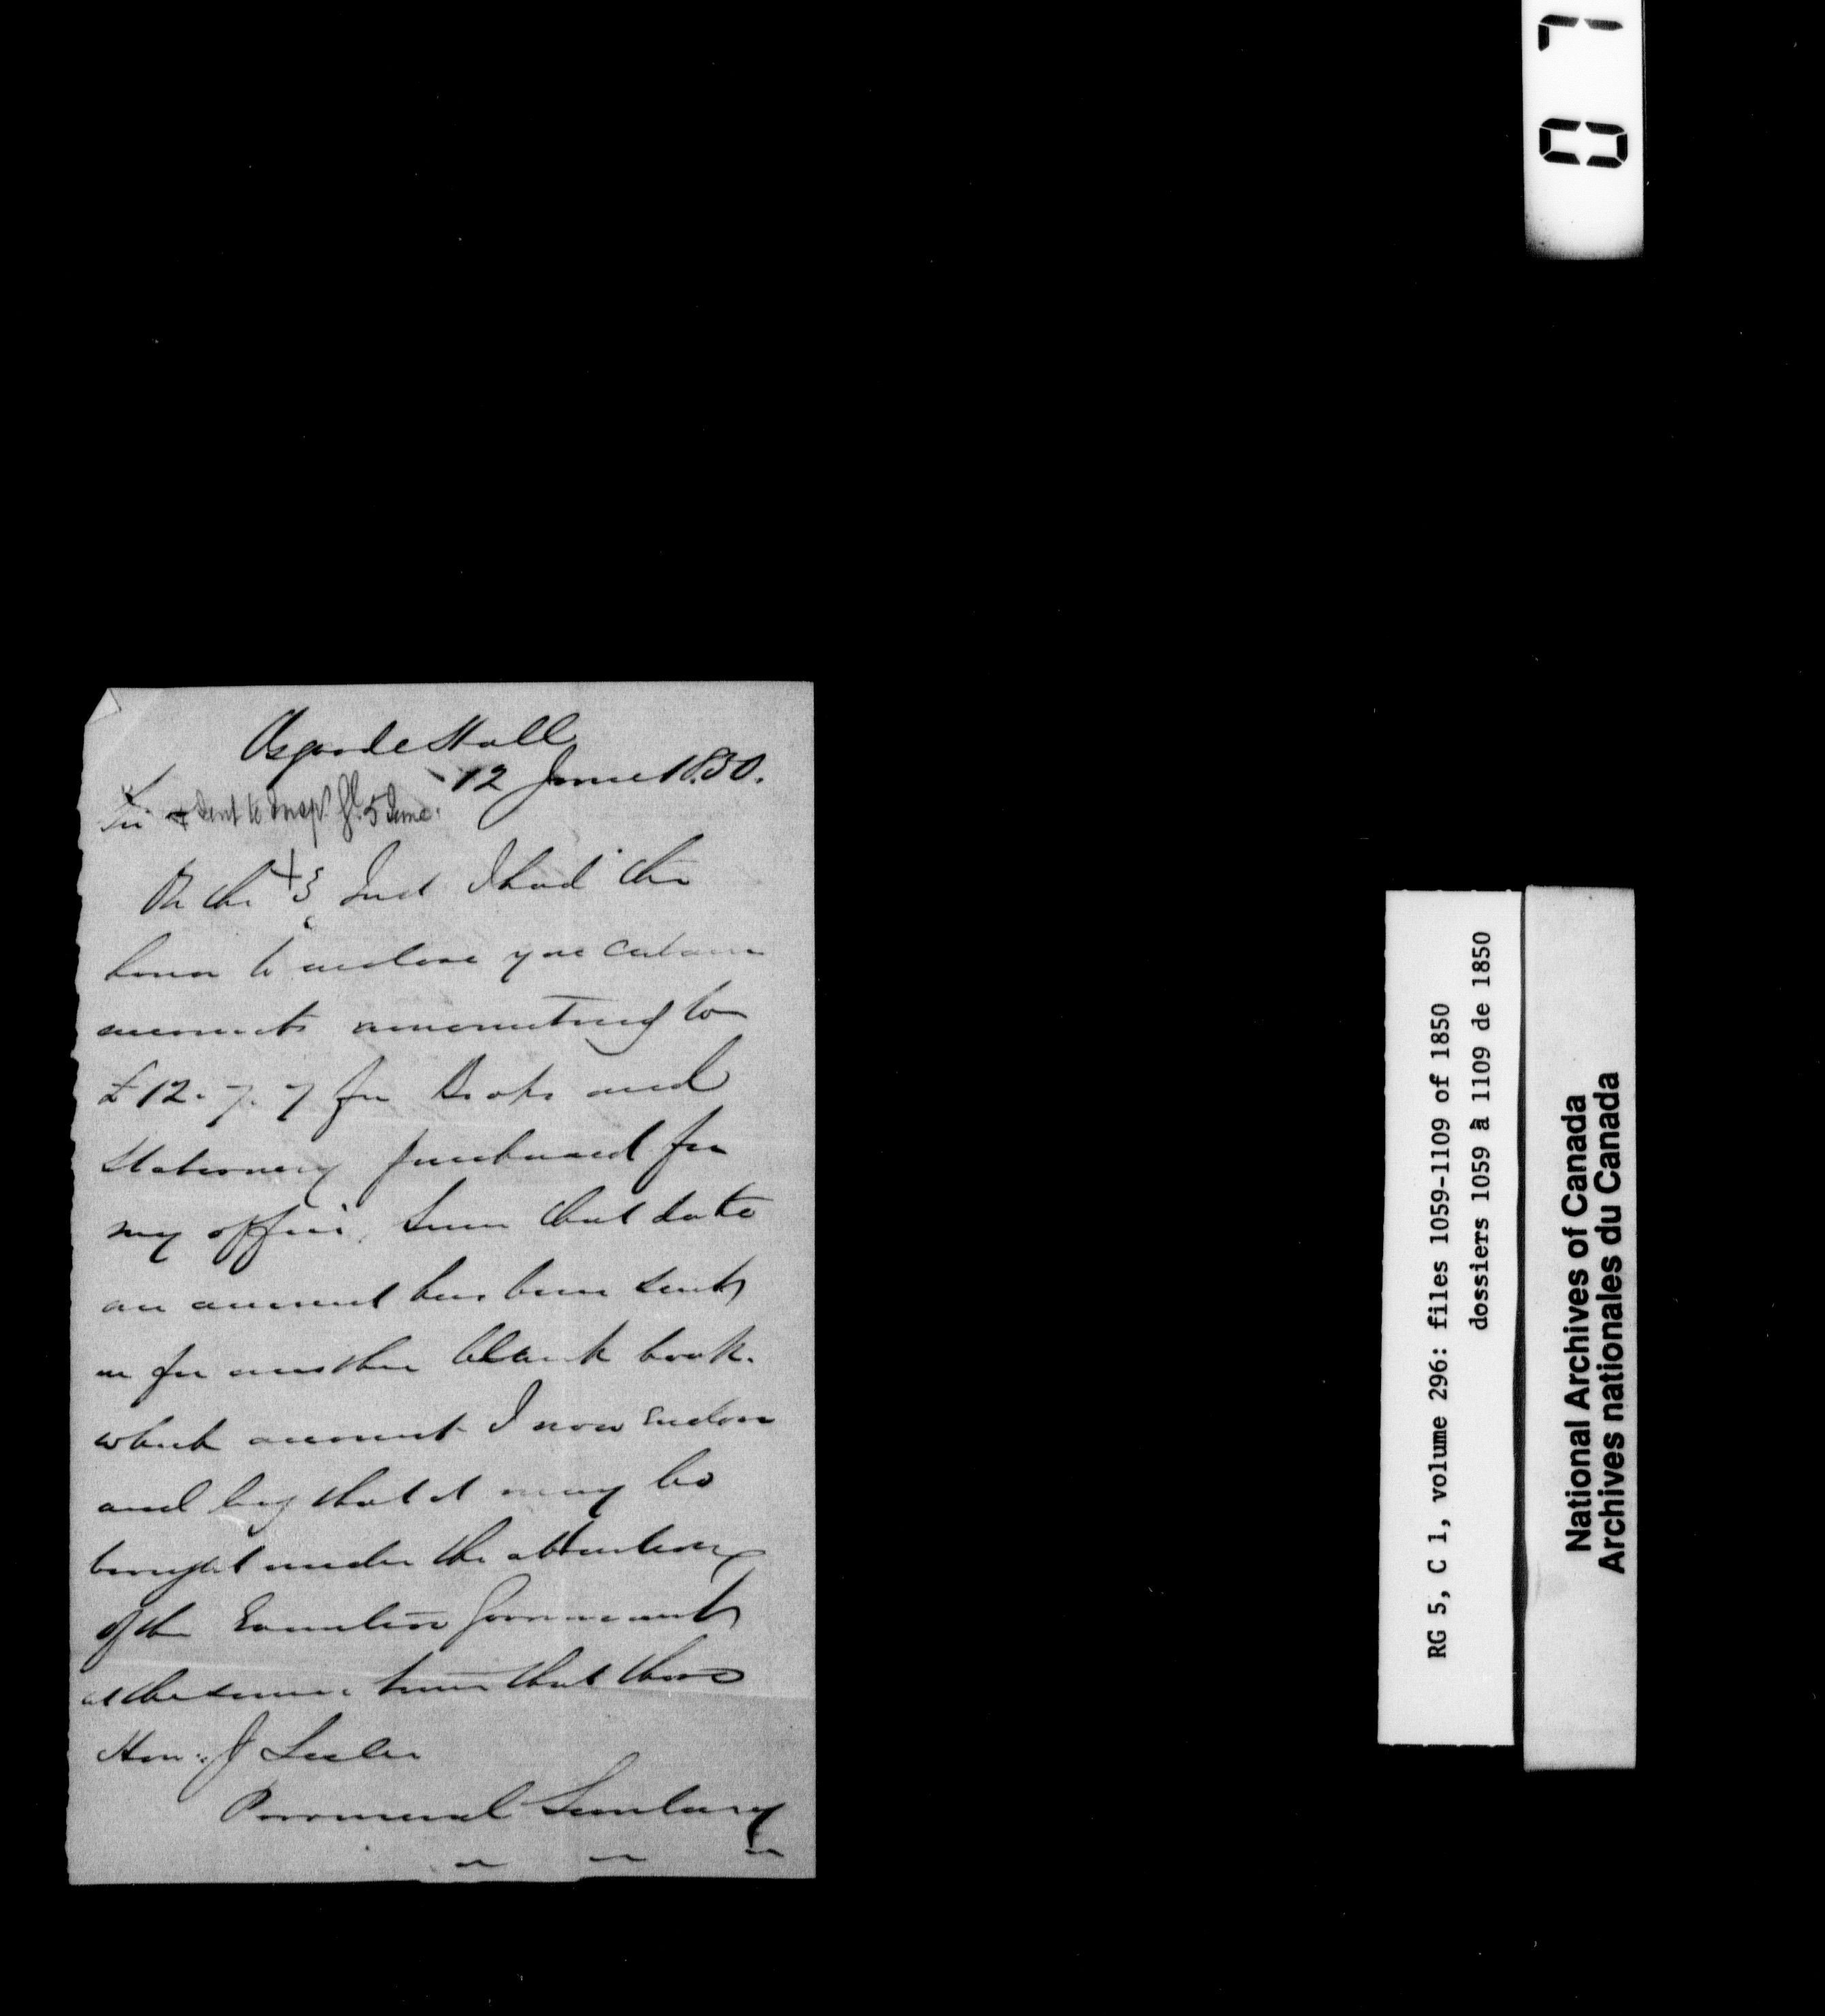 Osgoode Hall
12 June 1850.
Sir + Sent to Insp. Gl. 5 June.
On the + 3 Inst I had the
honor to enclose you certain
accounts amounting to
£12. 7. 7 for Books and
Stationery purchased for
my office, since that date
an account has been sent
in for another blank book.
which account I now enclose
and beg that it may be
brought under the attention
of the Executive Government
at the same time that those
Hon: J Leslie
Provincial Secretary
07
RG 5, C 1, volume 296: files 1059-1109 of 1850
dossiers 1059 à 1109 de 1850
National Archives of Canada
Archives nationales du Canada